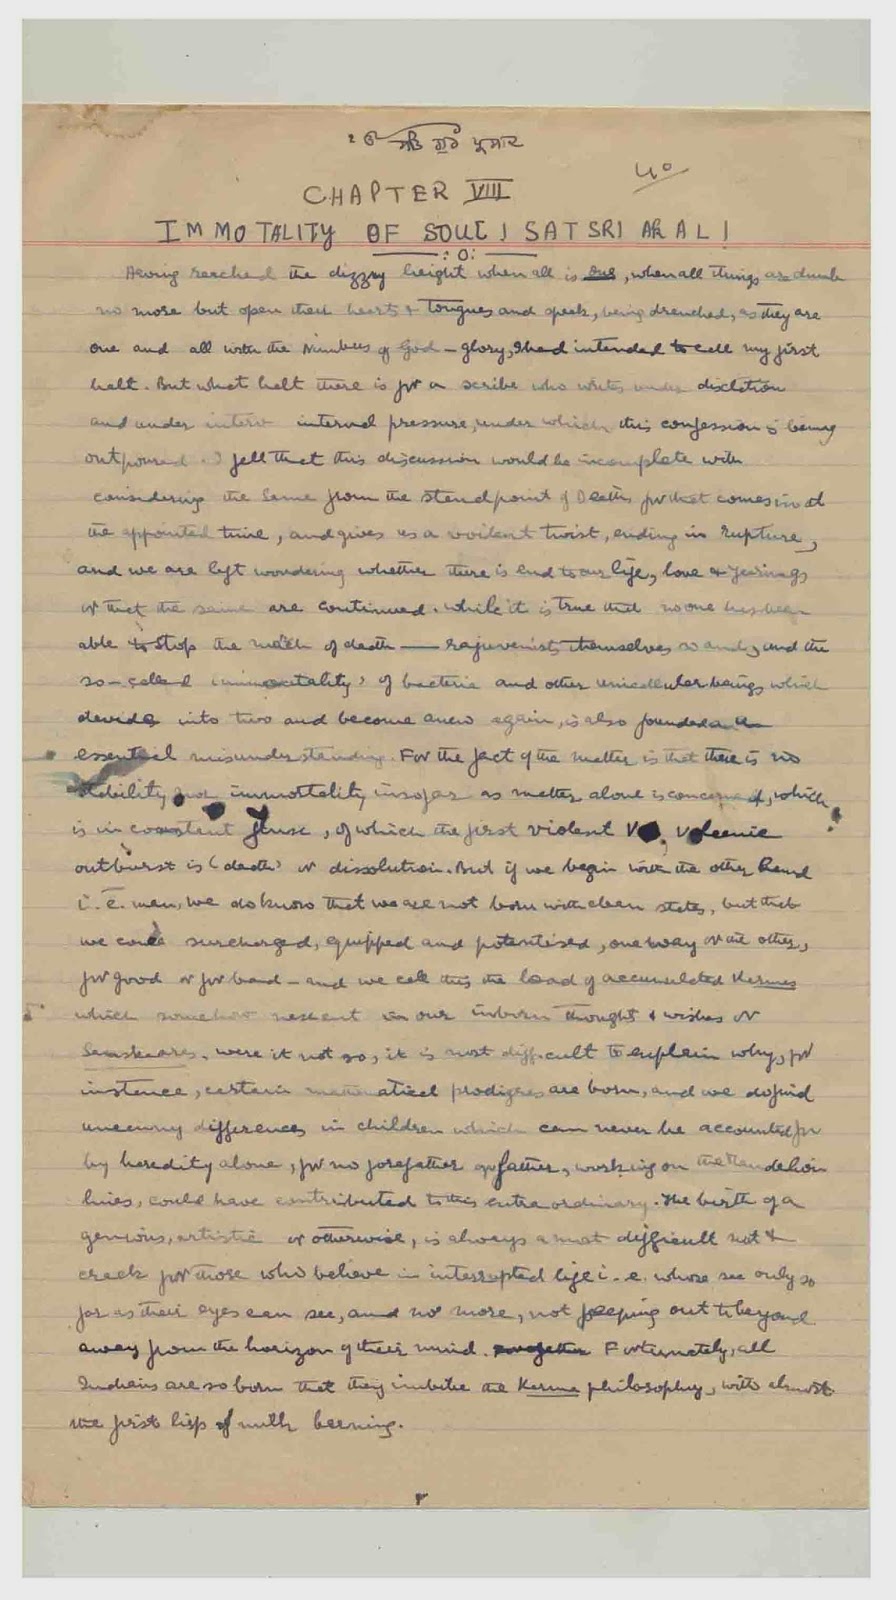 ੴ ਸਤਿ ਗੁਰ ਪ੍ਰਸਾਦ
੫੦
CHAPTER VIII
IMMOTALITY OF SOUL! SAT SRI AKAL!
:0:
Having reached the dizzy height when all is One, when all things are dumb
no more but open their hearts & tongues and speak, being drenched, as they are
one and all with the Nimbus of God - glory, I had intended to call my first
halt. But what halt there is for a scribe who writes under dictation
and under interv internal pressure, under which this confession is being
outpoured. I fell that this discussion would be incomplete with
considering the same from the standpoint of Death, for that comes in at
the appointed time, and gives us a voilent twist, ending in rupture,
and we are left wondering whether there is end to our life, love & yearnings
or that the same are continued. While it is true that no one has been
able to stop the march of death — rejuvenists themselves and the
so-called 'immortality' of bacteria and other unicellular beings which
devide into two and become anew again, is also founded on
essential misunderstanding. For the fact of the matter is that there is no
stability nor immortality insofar as matter alone is concerned, which
is in constant, of which the first violent Vo, Volcanic
outburst is (death) or dissolution. But if we begin with the other hand
i.e. man, we do know that we are not born with clean slates, but that
we come surcharged, equipped and potentised, one way or the other,
for good or for band - and we call this the load of accumulated Karmas
which somehow in our inborn thought & wishes or
Sanskaras. Were it not so, it is most difficult to explain why, for
instance, certain mathmatical prodigies are born, and we do find
uncanny differences in children which can never be accounted for
by heredity alone, for no forefather or father, working on the Mandelian
lines, could have contributed to this extra ordinary. The birth of a
genious, artistic or otherwise, is always a most difficult nut to
crack for those who believe in interrupted life i.e. whose see only so
far as their eyes can see, and no more, not peeping out to beyond
away from the horizon of their mind. Fortunately, all
Indians are so born that they imbibe the Karma philosophy, with almost
the first lisp of milk